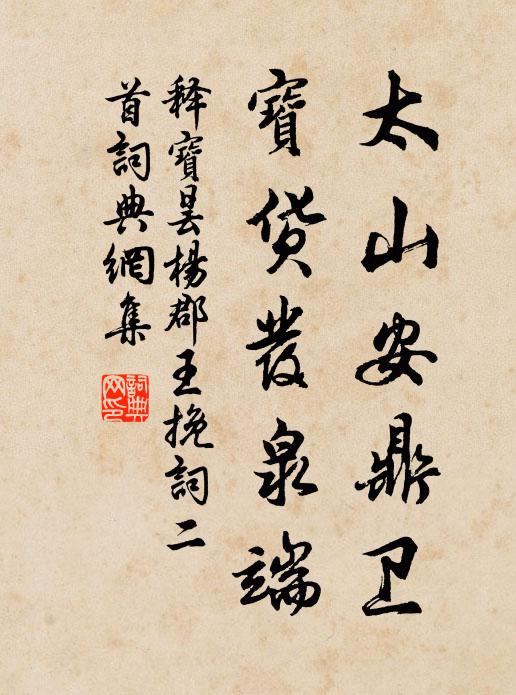 太山安鼎卫
寶货發泉端
释寶昙楊郡王挽詞二
首詞典網集
詞典
网印